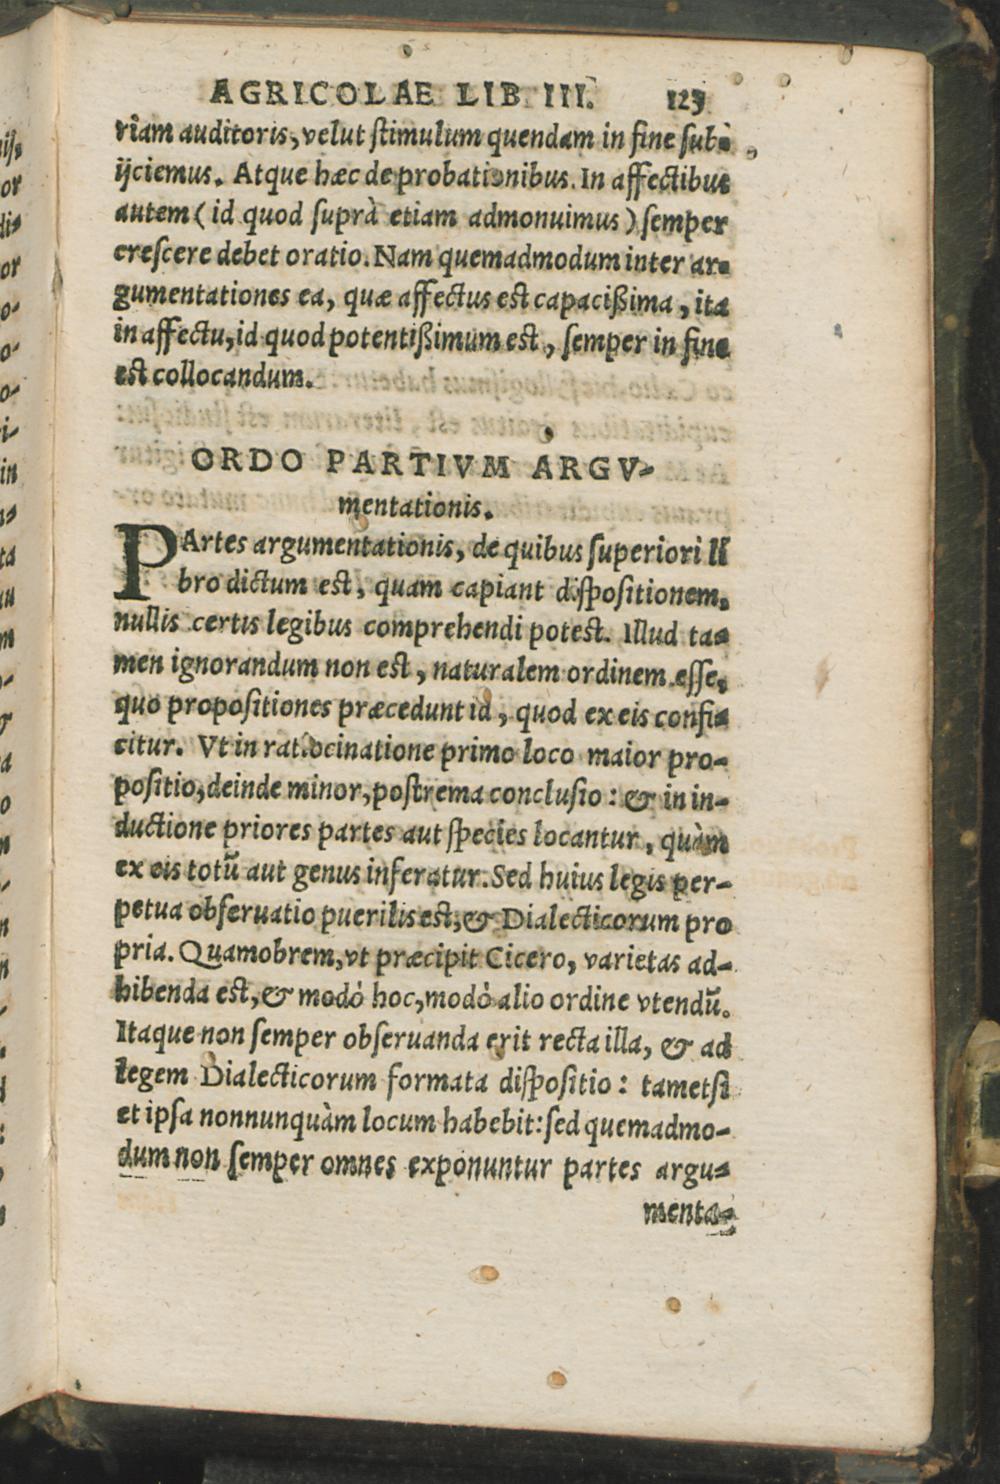 AGRICOLAE LIB. III. 123
riam auditoris, velut stimulum quendam in fine sub-
ijciemus. Atque hæc de probationibus. In affectibus
autem (id quod suprà etiam admonuimus) semper
crescere debet oratio. Nam quemadmodum inter ar-
gumentationes ea, quæ affectus est capacißima, ita
in affectu, id quod potentißimum est, semper in fine
est collocandum.
ORDO PARTIVM ARGV-
mentationis.
PArtes argumentationis, de quibus superiori li
bro dictum est, quam capiant dispositionem,
nullis certis legibus comprehendi potest. Illud ta-
men ignorandum non est, naturalem ordinem esse,
quo propositiones præcedunt id, quod ex eis confi-
citur. Vt in ratiocinatione primo loco maior pro-
positio, deinde minor, postrema conclusio: & in in-
ductione priores partes aut species locantur, quàm
ex eis totũ aut genus inferatur. Sed huius legis per-
petua obseruatio puerilis est, & Dialecticorum pro
pria. Quamobrem, vt præcipit Cicero, varietas ad-
hibenda est, & modò hoc, modò alio ordine vtendũ.
Itaque non semper obseruanda erit recta illa, & ad
legem Dialecticorum formata dispositio: tametsi
et ipsa nonnunquàm locum habebit: sed quemadmo-
dum non semper omnes exponuntur partes argu-
menta-